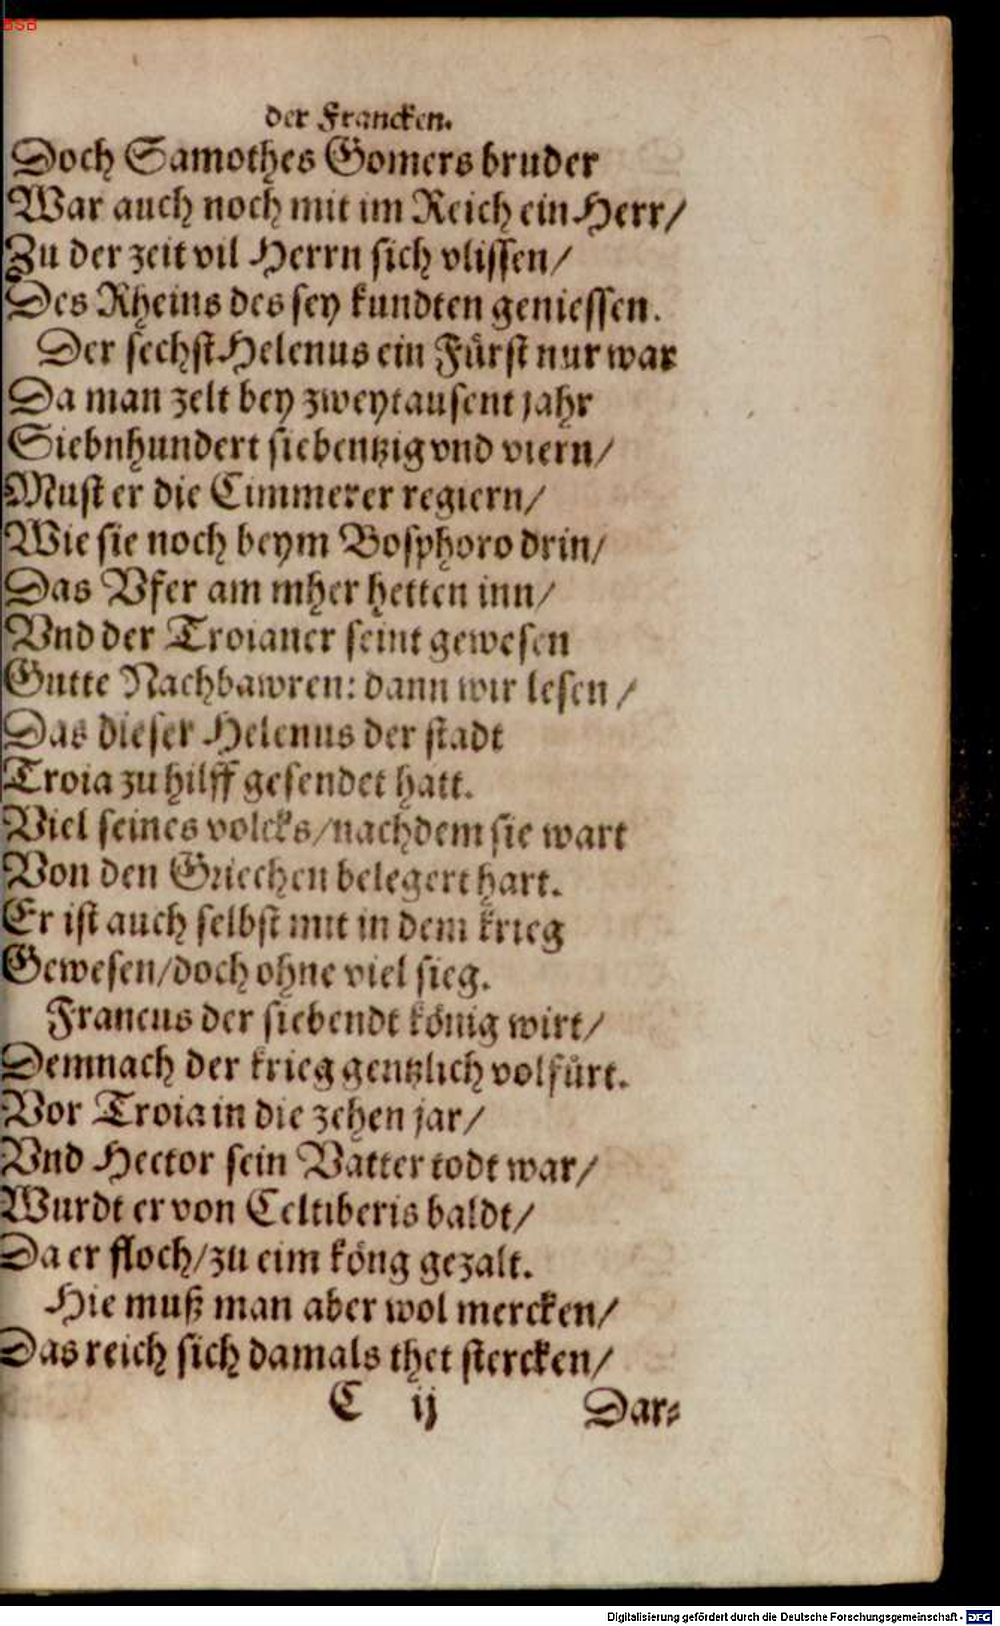 BSB
der Francken.
Doch Samothes Gomers bruder
War auch noch mit im Reich ein Herr/
Zu der zeit vil Herrn sich vlissen/
Des Rheins des sey kundten geniessen.
Der sechst Helenus ein Fürst nur war
Da man zelt bey zweytausent jahr
Siebnhundert siebentzig vnd viern/
Must er die Cimmerer regiern/
Wie sie noch beym Bosphoro drin/
Das Vfer am mher hetten inn/
Vnd der Troianer seint gewesen
Gutte Nachbawren: dann wir lesen/
Das dieser Helenus der stadt
Troia zu hilff gesendet hatt.
Viel seines volcks/nachdem sie wart
Von den Griechen belegert hart.
Er ist auch selbst mit in dem krieg
Gewesen/doch ohne viel sieg.
Francus der siebendt könig wirt/
Demnach der krieg gentzlich volfürt.
Vor Troia in die zehen jar/
Vnd Hector sein Vatter todt war/
Wurdt er von Celtiberis baldt/
Da er floch/zu eim köng gezalt.
Hie muß man aber wol mercken/
Das reich sich damals thet stercken/
C ij Dar⸗
Digitalisierung gefördert durch die Deutsche Forschungsgemeinschaft - DFG